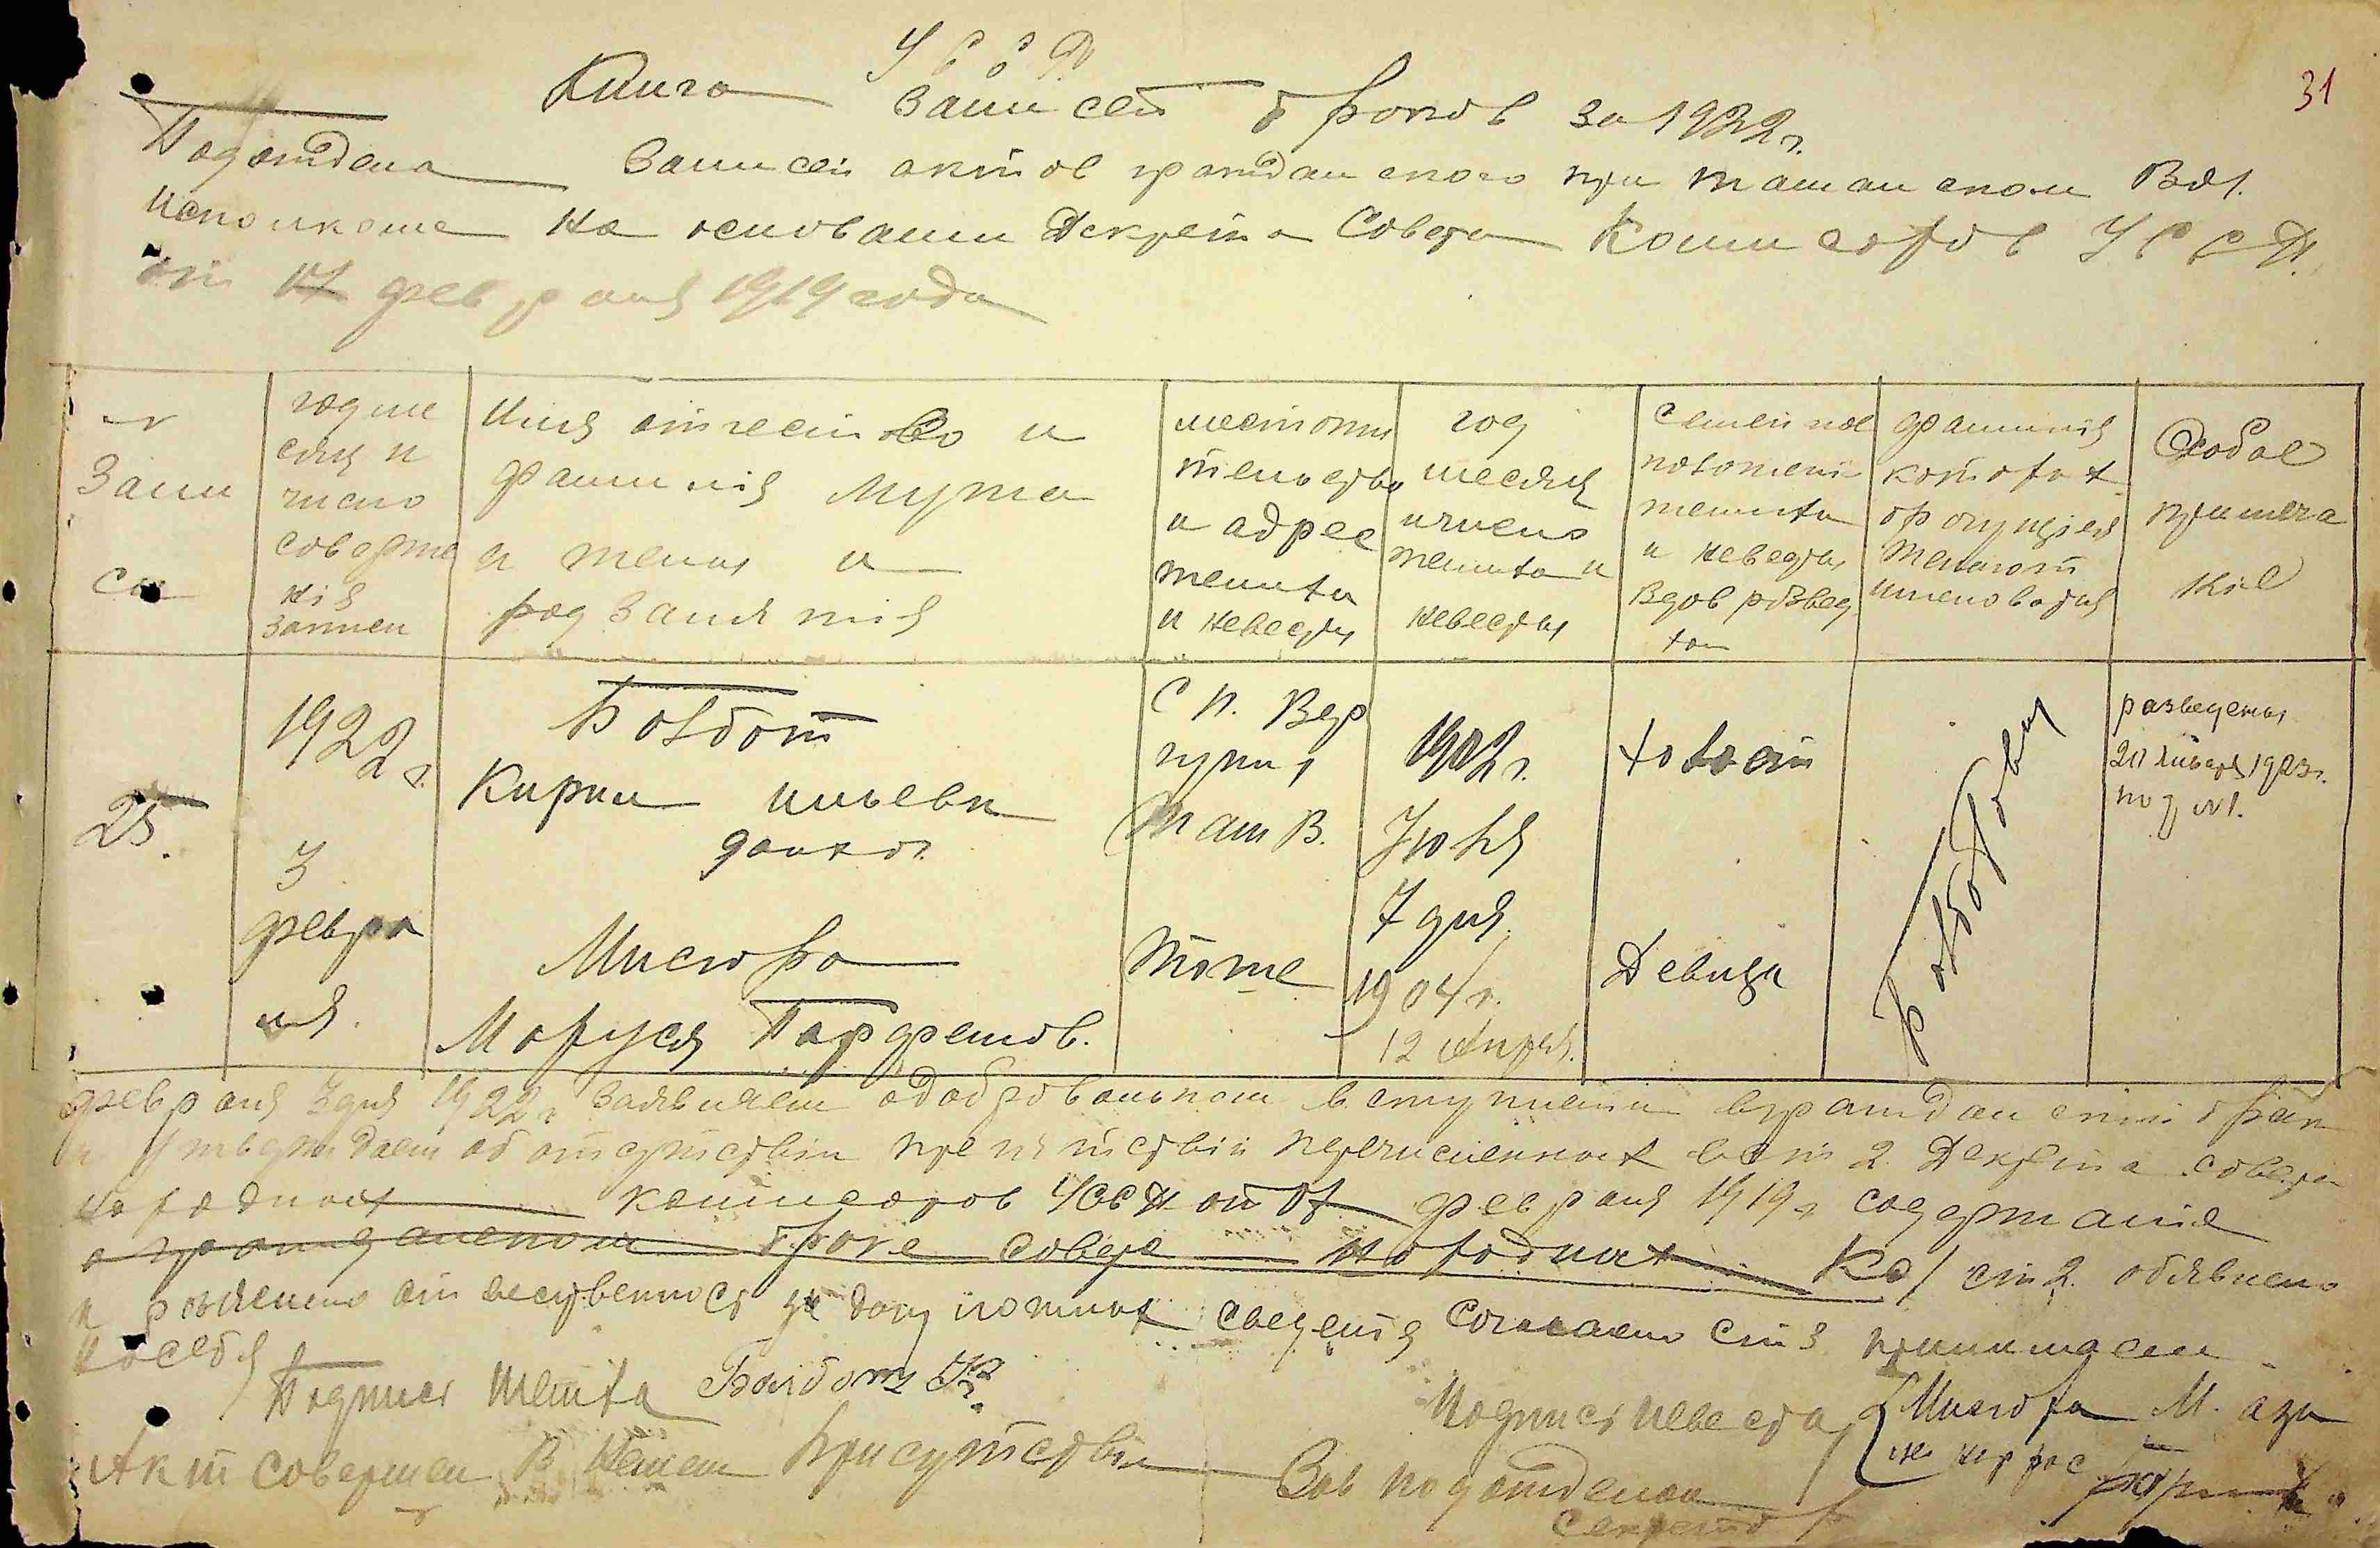 31
У С С Р
Книга Записей браков за 1922 г.
Подотдела Записей актов гражданского при Ташанском Вол.
исполкоме на основании Декрета Совета Комисаров УССР.
от 17 февраля 1919 года
N Записи
год месяц и число совершения записи
Имя отчество и фамилия мужа и жены и род занятий
местожительство и адрес жениха и невесты
год месяц и число жениха и невесты
Семейное положение жениха и невесты Вдов развед хол
фамилия которой брачущиеся желают именоватся
Особое примечание
25.
1922 г. 3 февраля.
Бовбот
Кирил ильевич
Мисюра
Маруся Парфемов.
Таш В.
тоже
1902 г.
7 дня.
1904 г.
12 Апреля.
холост
Девица
Бовботовы
разведены
20 января 1923 г.
под №1.
февраля 3 дня 1922 г. Заявляем о добровольном вступлении в гражданский брак
и утверждаем об отсутствии препятствий перечисленных в ст 2. Декрета совета
народных комисаров УССР от февраля 1919 г содержание
о гражданском браке совета народных Ко/ ст 2. объявлено
и розяснено ответственность за ложные сведения Согласно ст 3 принимаем
на себя
Подпись Жениха Бовбот К
Подпись невесты Мисюра М. а за
Акт совершен В нашем присутствии
Зав подотделом
секретар